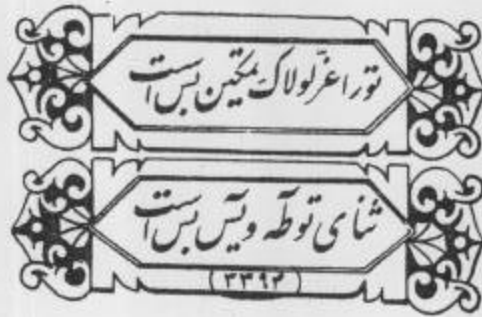 تو را عزّ لولاک تمکین بس است
ثنای تو طٓه و یٓس بس است
۳۳۹۲